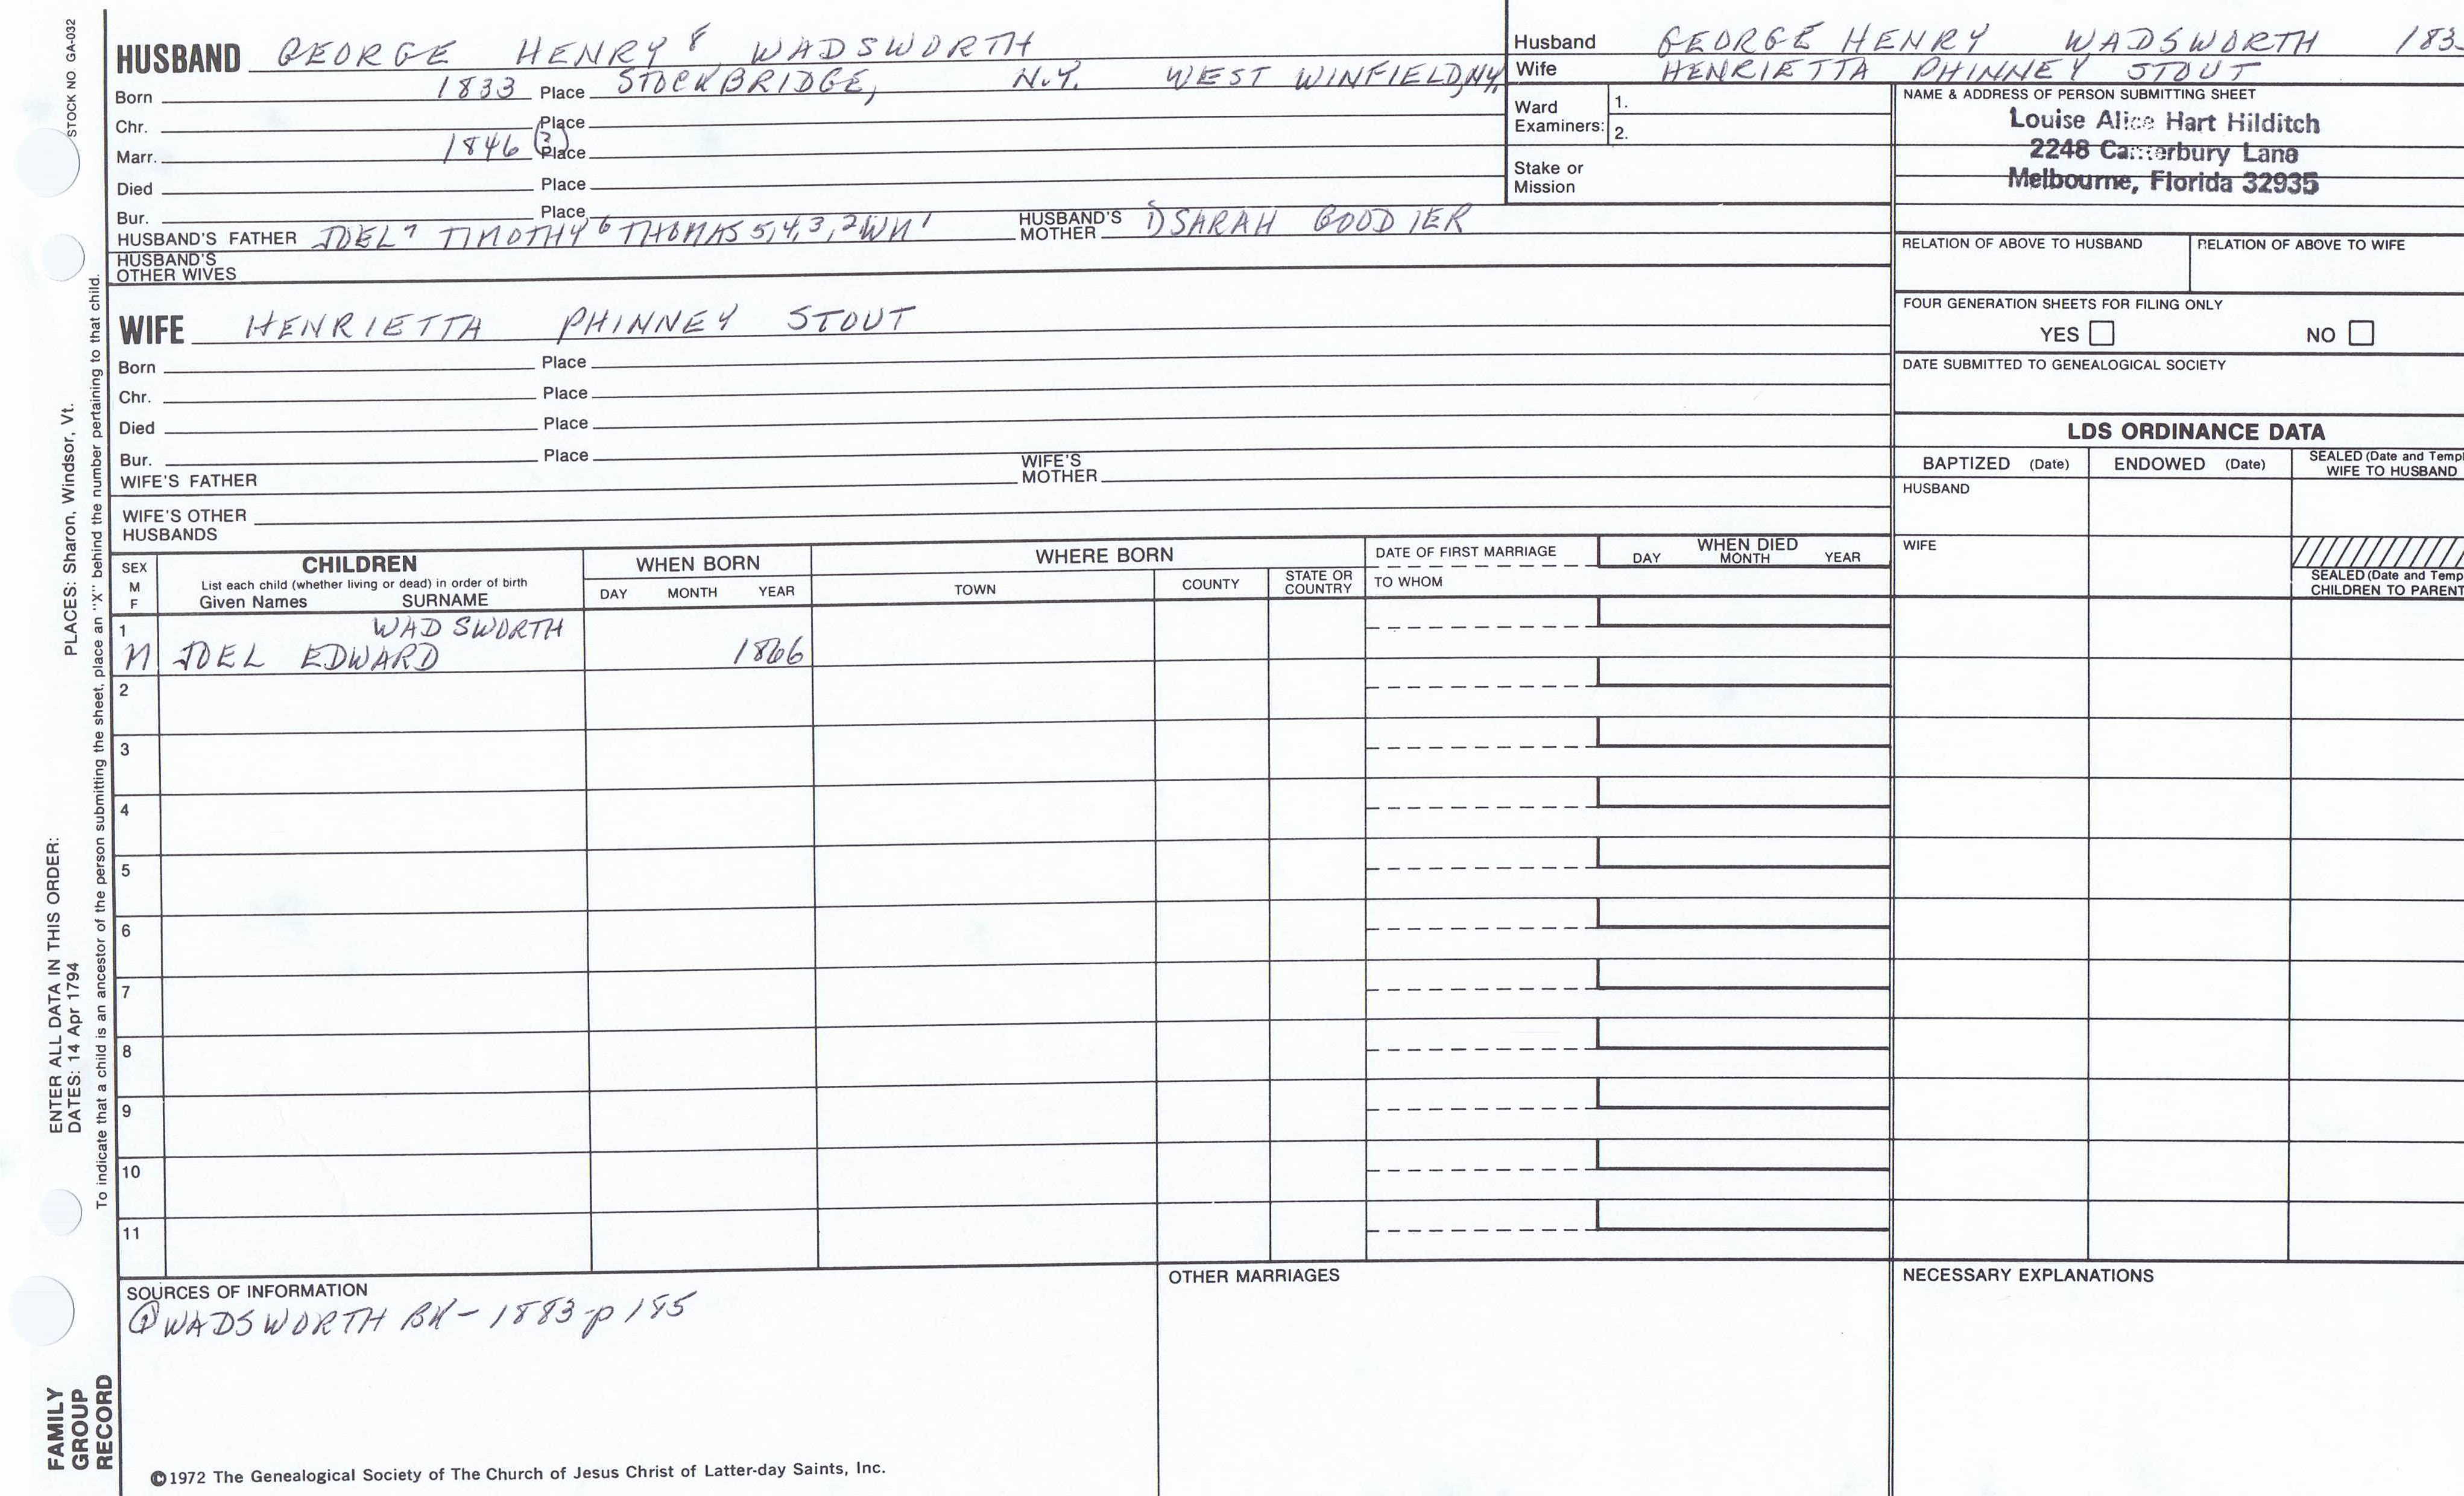 STOCK NO. GA-032
PLACES: Sharon, Windsor, Vt.
ENTER ALL DATA IN THIS ORDER:
DATES: 14 Apr 1794
To indicate that a child is an ancestor of the person submitting the sheet, place an "X" behind the number pertaining to that child.
FAMILY
GROUP
RECORD
HUSBAND GEORGE HENRY 8 WADSWORTH
Born 1833 Place STOCKBRIDGE, N.Y. WEST WINFIELD, NY,
Chr. Place
Marr. 1846 (?) Place
Died Place
Bur. Place
HUSBAND'S FATHER JOEL 7 TIMOTHY 6 THOMAS 5,4,3,2 WM 1 HUSBAND'S MOTHER 1) SARAH GOODIER
HUSBAND'S
OTHER WIVES
WIFE HENRIETTA PHINNEY STOUT
Born Place
Chr. Place
Died Place
Bur. Place
WIFE'S FATHER WIFE'S MOTHER
WIFE'S OTHER
HUSBANDS
Husband GEORGE HENRY WADSWORTH 183
Wife HENRIETTA PHINNEY STOUT
Ward Examiners: 1.
2.
Stake or
Mission
NAME & ADDRESS OF PERSON SUBMITTING SHEET
Louise Alice Hart Hilditch
2248 Canterbury Lane
Melbourne, Florida 32935
RELATION OF ABOVE TO HUSBAND RELATION OF ABOVE TO WIFE
FOUR GENERATION SHEETS FOR FILING ONLY
YES NO
DATE SUBMITTED TO GENEALOGICAL SOCIETY
LDS ORDINANCE DATA
BAPTIZED (Date) ENDOWED (Date) SEALED (Date and Templ
WIFE TO HUSBAND
HUSBAND
WIFE
SEALED (Date and Temp
CHILDREN TO PARENT
SEX
M
F
CHILDREN
List each child (whether living or dead) in order of birth
Given Names SURNAME
WHEN BORN
DAY MONTH YEAR
WHERE BORN
TOWN COUNTY STATE OR COUNTRY
DATE OF FIRST MARRIAGE
TO WHOM
WHEN DIED
DAY MONTH YEAR
1 WADSWORTH
M JOEL EDWARD 1866
2
3
4
5
6
7
8
9
10
11
SOURCES OF INFORMATION
① WADSWORTH BK - 1883 - p 185
OTHER MARRIAGES
NECESSARY EXPLANATIONS
©1972 The Genealogical Society of The Church of Jesus Christ of Latter-day Saints, Inc.